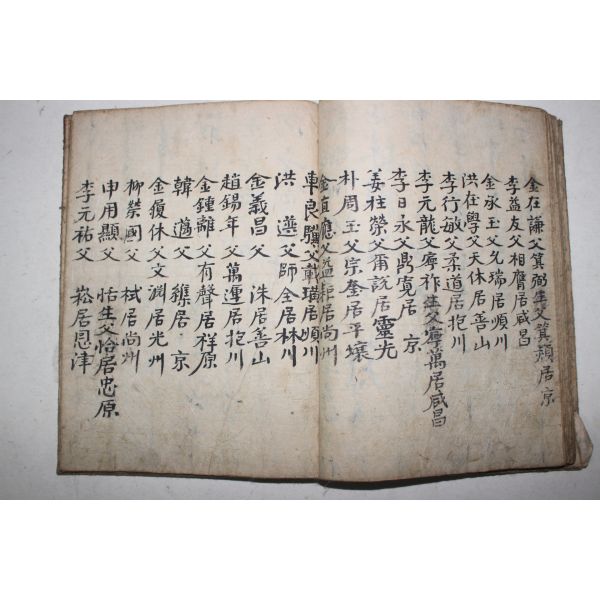 金在謙父箕弼生父箕頴居京
李益友父相膺居咸昌
金永玉父允瑞居順川
洪在學父天休居善山
李行敏父柔道居抱川
李元龍父寧祚生父寧萬居咸昌
李日永父鼎寬居京
姜柱榮父甫說居靈光
朴周玉父宗奎居平壤
金直應父益 居尚州
車良驥父載璜居順川
洪 父師全居林川
金義昌父洙居善山
趙錫年父萬運居抱川
金鍾離父有聲居祥原
韓 父 居京
金復休父文淵居光州
柳榮國父栻居尚州
申用顯父恬生父恰居忠原
李元祐父崧居恩津